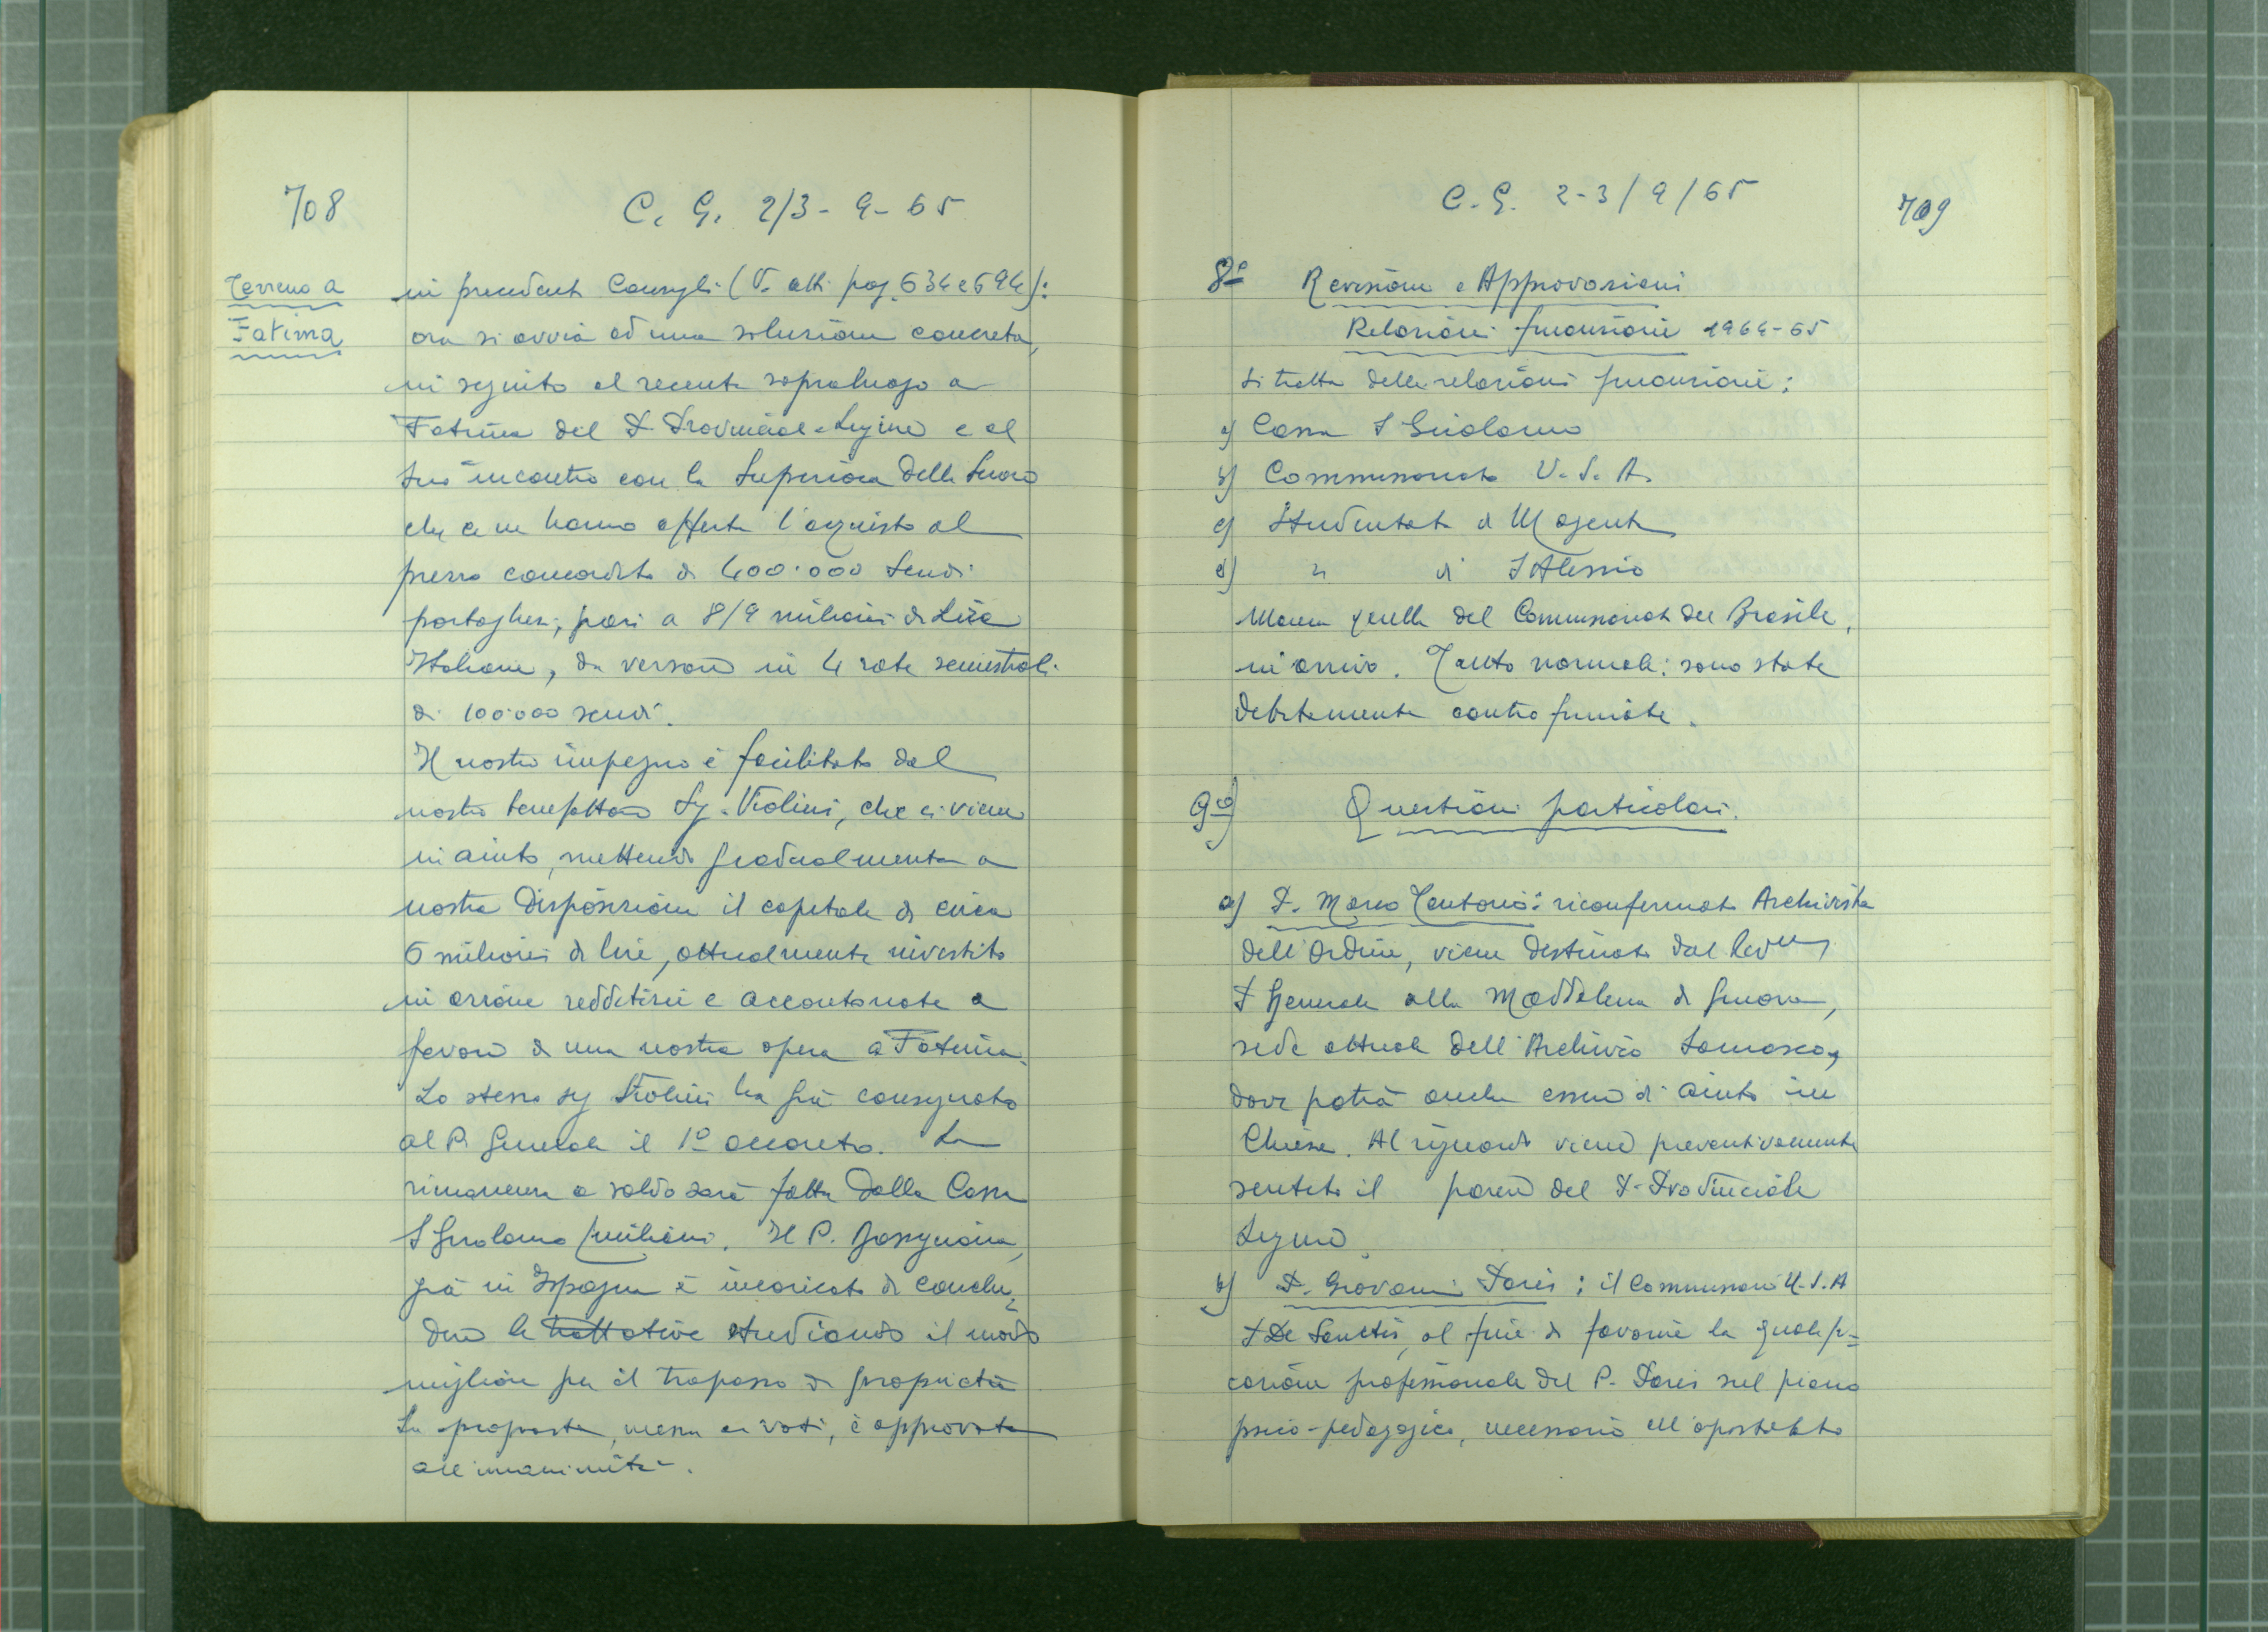 708
C. G. 2/3 - 9 - 65
Terreno a
Fatima
in precedenti Consigli (V. atti pag. 634 e 694):
ora si avvia ad una soluzione concreta,
in seguito al recente sopraluogo a
Fatima del P. Provinciale Ligure e al
suo incontro con la Superiora delle Suore
che ce ne hanno offerto l'acquisto al
prezzo concordato di 400.000 Scudi
portoghesi, pari a 8/9 milioni di Lire
Italiane, da versare in 4 rate semestrali
di 100.000 scudi.
Il nostro impegno è facilitato dal
nostro benefattore Sig. Violini, che ci viene
in aiuto, mettendo gradualmente a
nostra disposizione il capitale di circa
6 milioni di lire, attualmente investito
in azione redditizie e accantonate a
favore di una nostra opera a Fatima.
Lo stesso sig Violini ha già consegnato
al P. Generale il 1º acconto. La
rimanenza a saldo sarà fatta dalla Casa
S Girolamo Emiliani. Il P.
già in Ispagna è incaricato di conclu=
dere le trattative studiando il modo
migliore per il trapasso di proprietà
La proposta, messa ai voti, è approvata
all'unanimità.
C. G. 2-3/9/65
709
8º Revisione e Approvazioni
Relazioni finanziarie 1964-65
Si tratta delle relazioni finanziarie:
a) Casa S Girolamo
b) Commissariato U.S.A.
c) Studentato di Magenta
d) " di S Alessio
Manca quella del Commissariato del Brasile,
in arrivo. Tutto normale: sono state
debitamente controfirmate.
9º) Questioni particolari.
a) P. Marco Tentorio: riconfermato Archivista
dell'Ordine, viene destinato dal Rev.mo
P Generale alla Maddalena di Genova,
sede attuale dell'Archivio Somasco,
dove potrà anche essere di aiuto in
Chiesa. Al riguardo viene preventivamente
sentito il parere del P. Provinciale
Ligure.
b) P. Giovanni : il Commissario U.S.A
P De Sanctis, al fine di favorire la qualifi=
cazione professionale del P. sul piano
psico-pedagogico, necessario all'apostolato